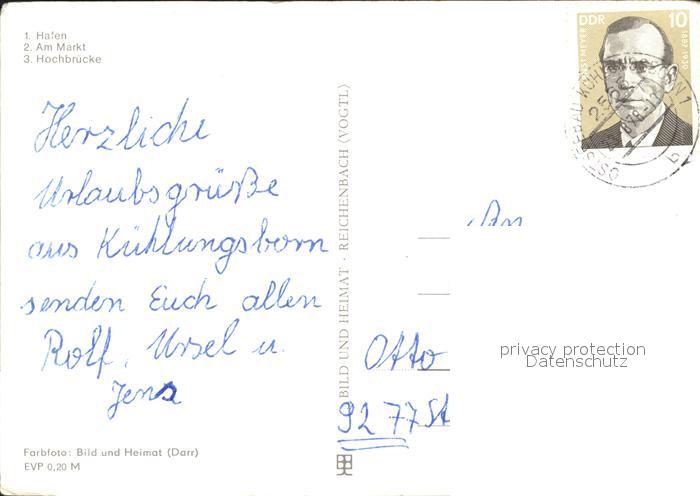 1. Hafen
2. Am Markt
3. Hochbrücke
Herzliche
Urlaubsgrüße
aus Kühlungsborn
senden Euch allen
Rolf, Ursel u.
Jens
Farbfoto: Bild und Heimat (Darr)
EVP 0,20 M
BILD UND HEIMAT · REICHENBACH (VOGTL)
DDR 10
1887-1930
An
Otto
9277 St
privacy protection
Datenschutz